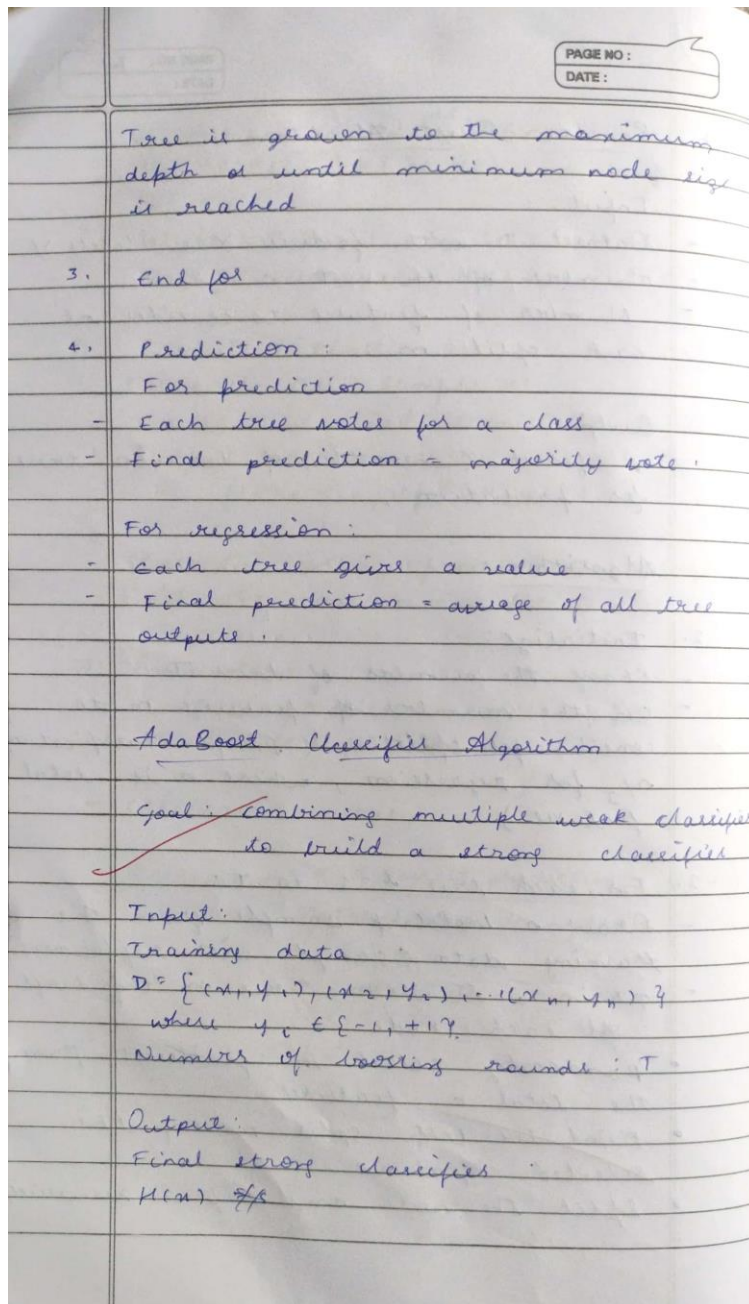 PAGE NO :
DATE :
Tree is grown to the maximum
depth or until minimum node size
is reached
3. End for
4. Prediction :
For prediction
- Each tree votes for a class
- Final prediction = majority vote .
For regression :
- Each tree gives a value
- Final prediction = average of all tree
outputs .
AdaBoost Classifier Algorithm
Goal : combining multiple weak classifier
to build a strong classifier
Input :
Training data
D = { (x₁, y₁), (x₂, y₂), ... (xₙ, yₙ) }
where yᵢ ∈ {-1, +1}.
Numbers of boosting rounds : T
Output :
Final strong classifier
H(x)